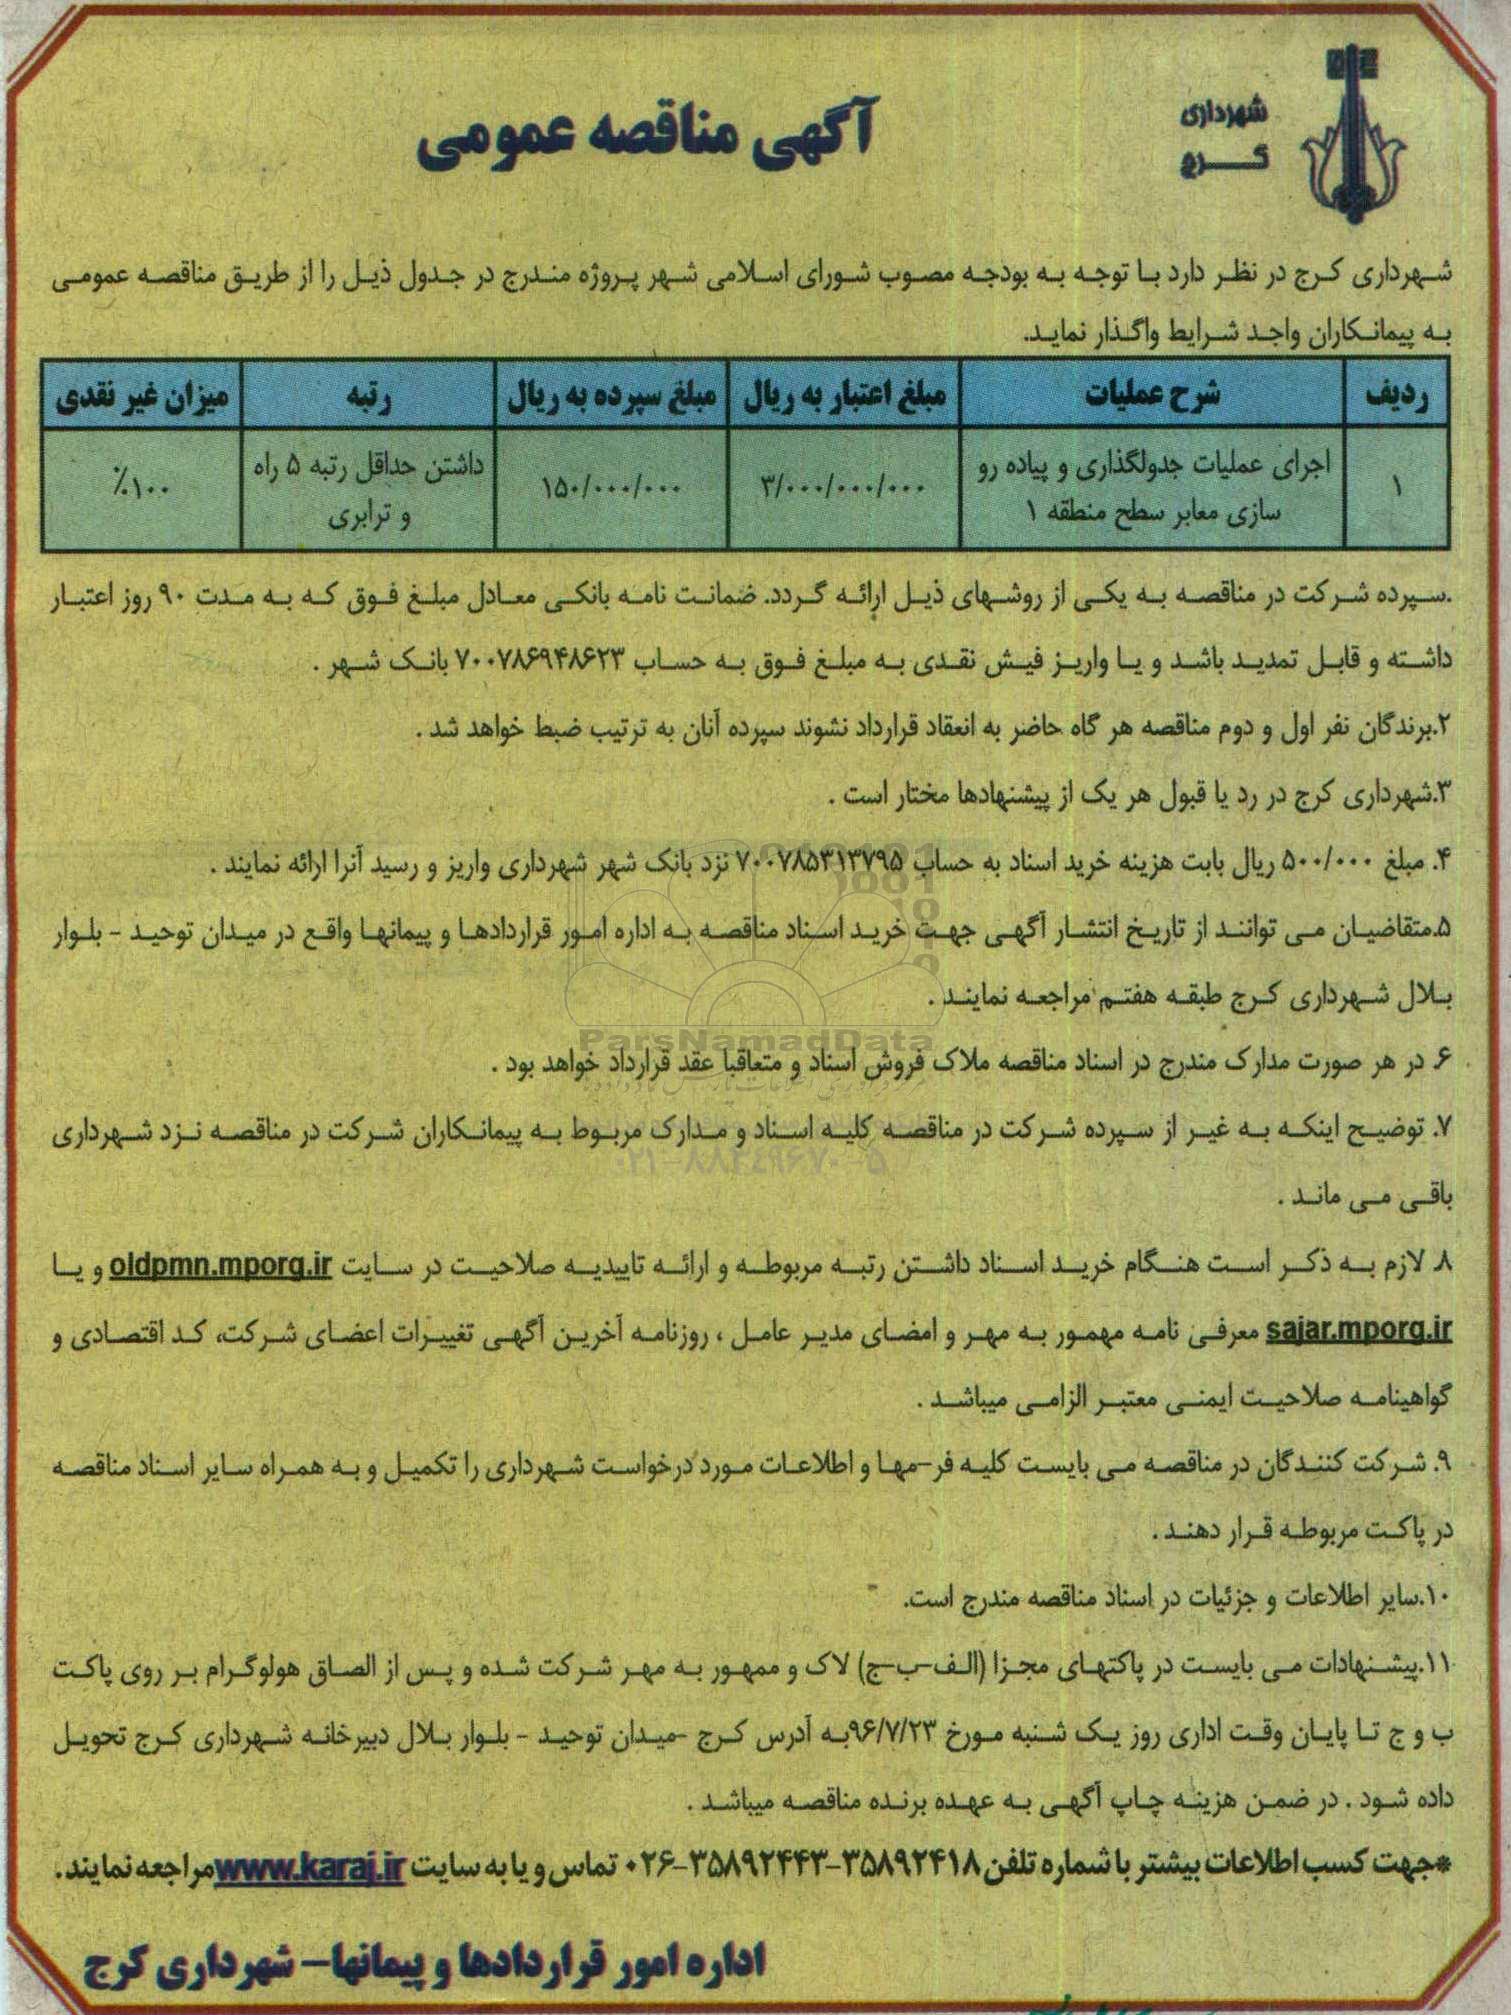 شهرداری
کرج
آگهی مناقصه عمومی
شهرداری کرج در نظر دارد با توجه به بودجه مصوب شورای اسلامی شهر پروژه مندرج در جدول ذیل را از طریق مناقصه عمومی
به پیمانکاران واجد شرایط واگذار نماید.
ردیف شرح عملیات مبلغ اعتبار به ریال مبلغ سپرده به ریال رتبه میزان غیر نقدی
۱ اجرای عملیات جدولگذاری و پیاده رو سازی معابر سطح منطقه ۱ ۳/۰۰۰/۰۰۰/۰۰۰ ۱۵۰/۰۰۰/۰۰۰ داشتن حداقل رتبه ۵ راه و ترابری ۱۰۰٪
.سپرده شرکت در مناقصه به یکی از روشهای ذیل ارائه گردد. ضمانت نامه بانکی معادل مبلغ فوق که به مدت ۹۰ روز اعتبار
داشته و قابل تمدید باشد و یا واریز فیش نقدی به مبلغ فوق به حساب ۷۰۰۷۸۶۹۴۸۶۲۳ بانک شهر .
۲.برندگان نفر اول و دوم مناقصه هر گاه حاضر به انعقاد قرارداد نشوند سپرده آنان به ترتیب ضبط خواهد شد .
۳.شهرداری کرج در رد یا قبول هر یک از پیشنهادها مختار است .
۴. مبلغ ۵۰۰/۰۰۰ ریال بابت هزینه خرید اسناد به حساب ۷۰۰۷۸۵۳۱۳۷۹۵ نزد بانک شهر شهرداری واریز و رسید آنرا ارائه نمایند .
۵.متقاضیان می توانند از تاریخ انتشار آگهی جهت خرید اسناد مناقصه به اداره امور قراردادها و پیمانها واقع در میدان توحید - بلوار
بلال شهرداری کرج طبقه هفتم مراجعه نمایند .
ParsNamadData
۶. در هر صورت مدارک مندرج در اسناد مناقصه ملاک فروش اسناد و متعاقبا عقد قرارداد خواهد بود .
۷. توضیح اینکه به غیر از سپرده شرکت در مناقصه کلیه اسناد و مدارک مربوط به پیمانکاران شرکت در مناقصه نزد شهرداری
۰۲۱-۸۸۳۴۹۶۷۰-۵
باقی می ماند .
۸. لازم به ذکر است هنگام خرید اسناد داشتن رتبه مربوطه و ارائه تاییدیه صلاحیت در سایت oldpmn.mporg.ir و یا
sajar.mporg.ir معرفی نامه مهمور به مهر و امضای مدیر عامل ، روزنامه آخرین آگهی تغییرات اعضای شرکت، کد اقتصادی و
گواهینامه صلاحیت ایمنی معتبر الزامی میباشد .
۹. شرکت کنندگان در مناقصه می بایست کلیه فرمها و اطلاعات مورد درخواست شهرداری را تکمیل و به همراه سایر اسناد مناقصه
در پاکت مربوطه قرار دهند .
۱۰.سایر اطلاعات و جزئیات در اسناد مناقصه مندرج است.
۱۱.پیشنهادات می بایست در پاکتهای مجزا (الف-ب-ج) لاک و ممهور به مهر شرکت شده و پس از الصاق هولوگرام بر روی پاکت
ب و ج تا پایان وقت اداری روز یک شنبه مورخ ۹۶/۷/۲۳به آدرس کرج -میدان توحید - بلوار بلال دبیرخانه شهرداری کرج تحویل
داده شود . در ضمن هزینه چاپ آگهی به عهده برنده مناقصه میباشد .
*جهت کسب اطلاعات بیشتر با شماره تلفن ۳۵۸۹۲۴۱۸-۳۵۸۹۲۴۴۳-۰۲۶ تماس و یا به سایت www.karaj.ir مراجعه نمایند.
اداره امور قراردادها و پیمانها- شهرداری کرج